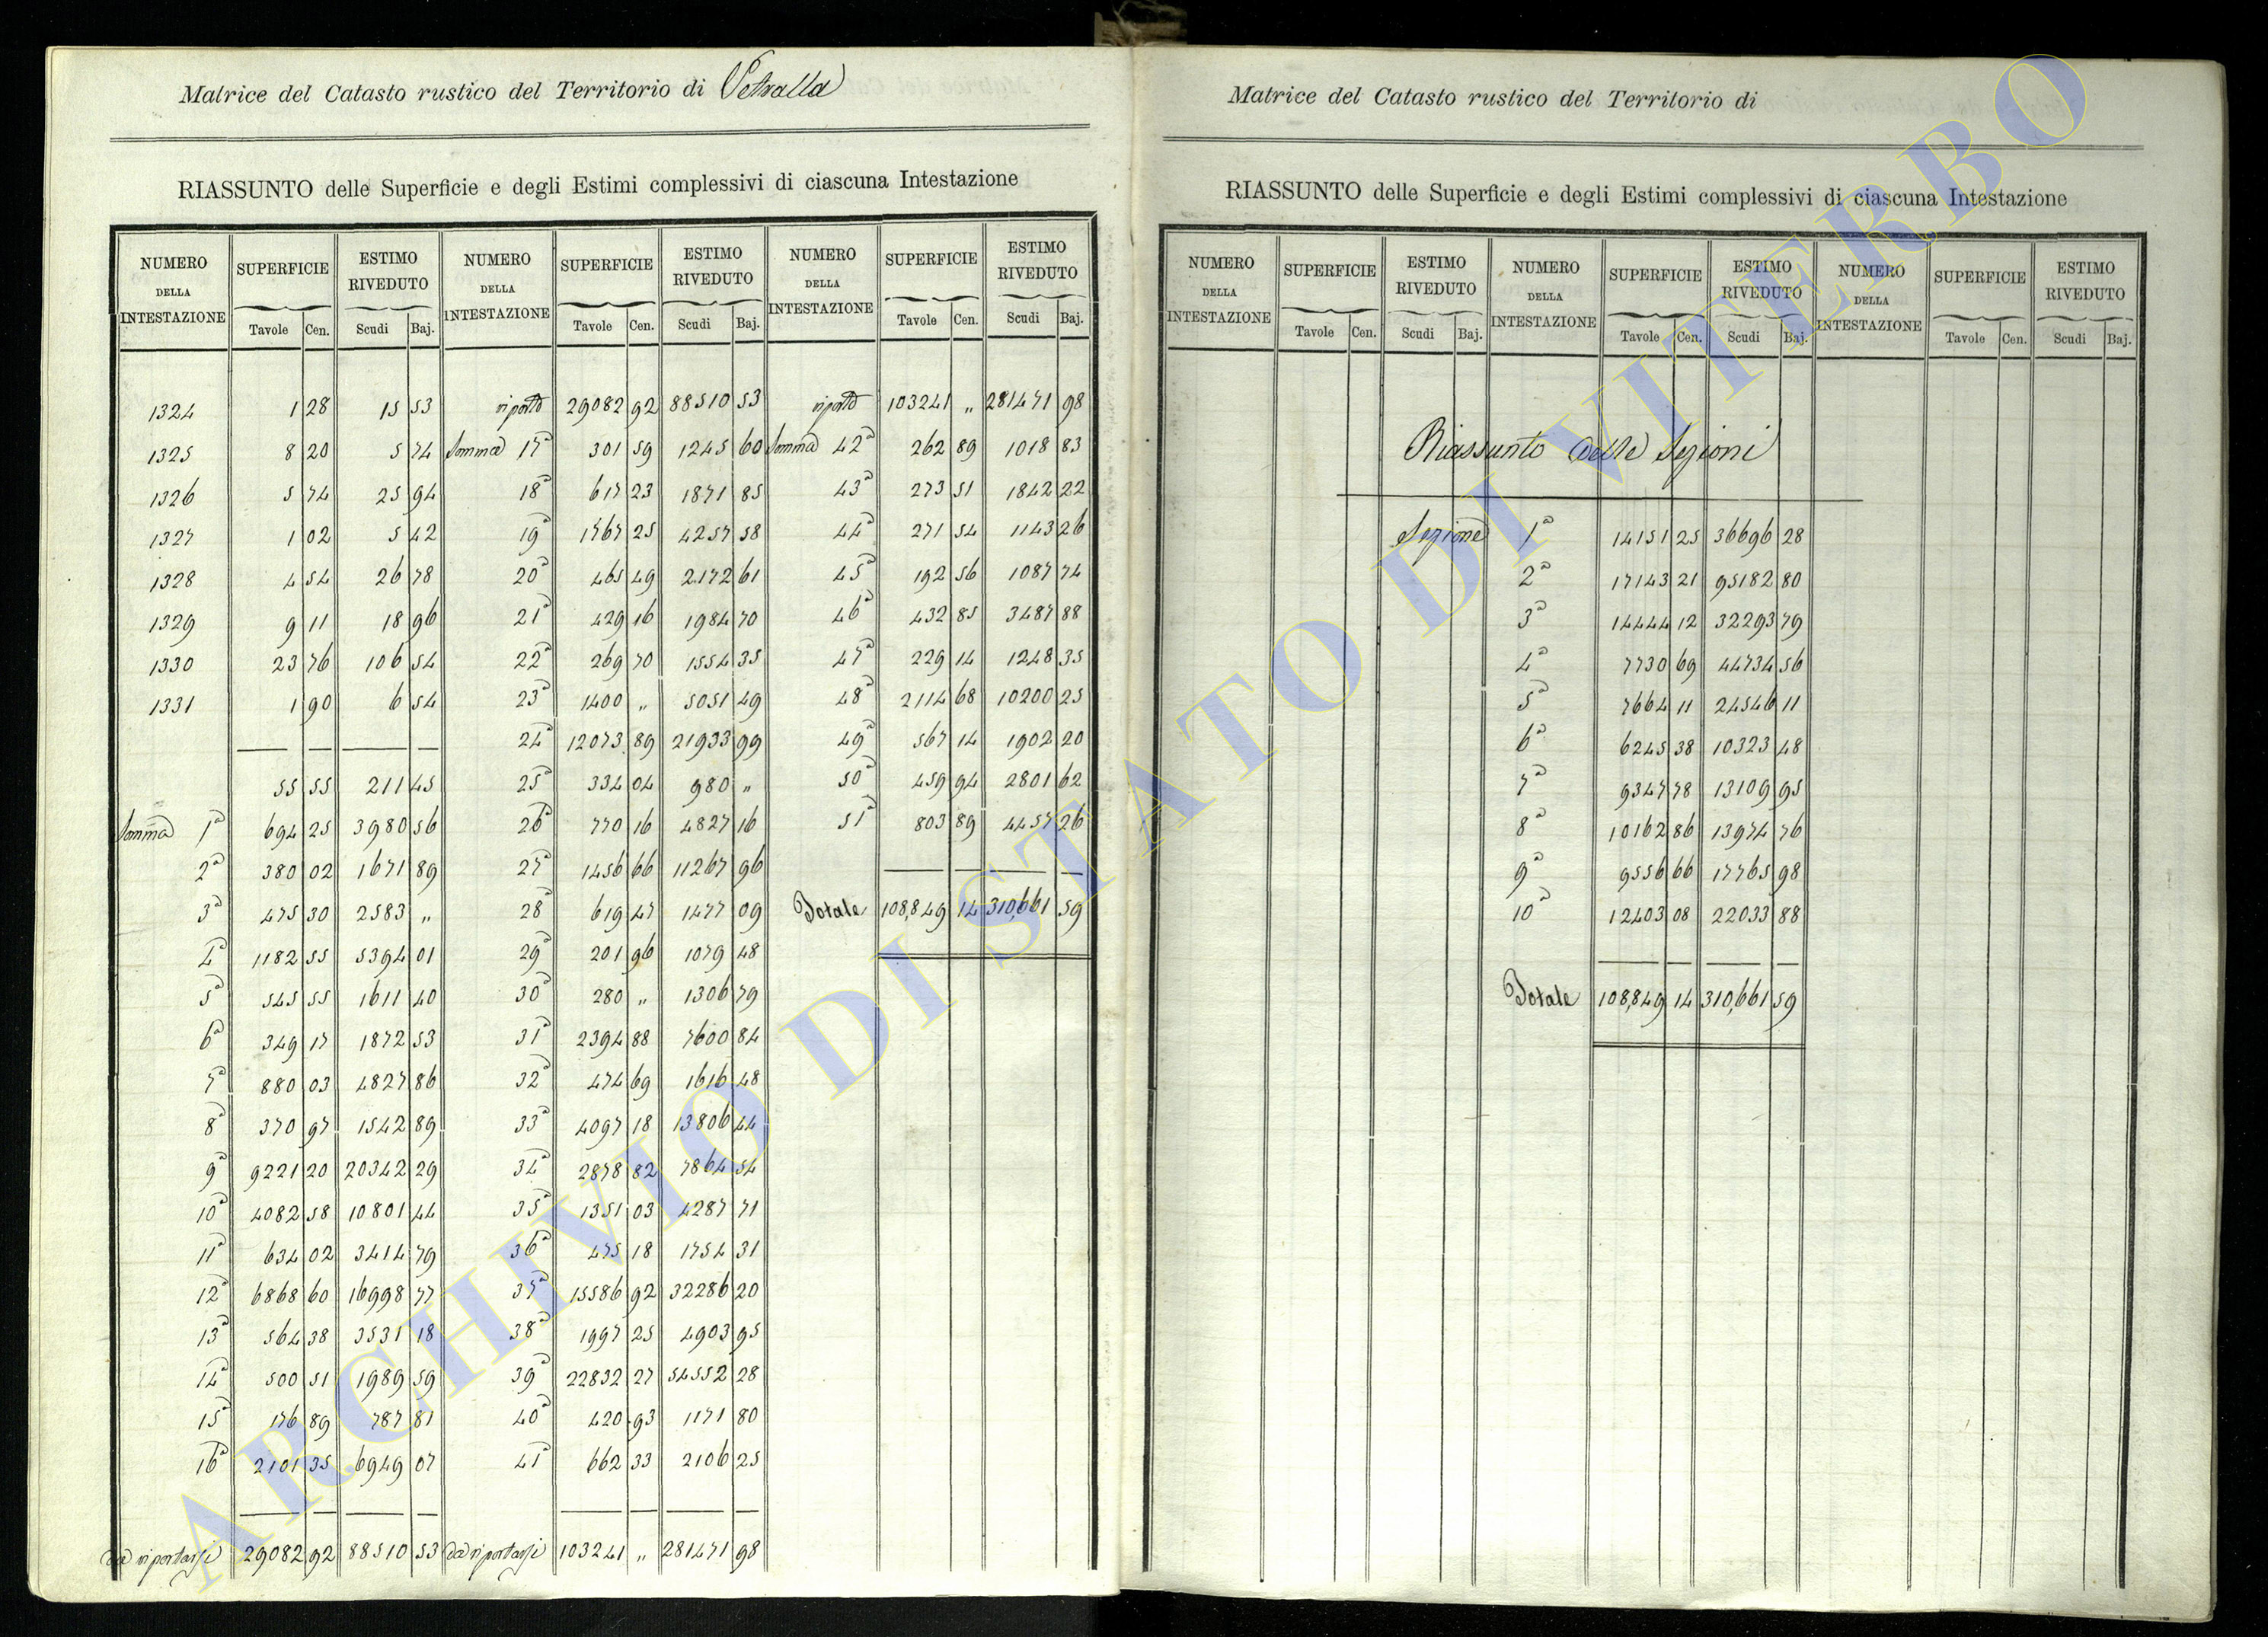 Matrice del Catasto rustico del Territorio di Vetralla
RIASSUNTO delle Superficie e degli Estimi complessivi di ciascuna Intestazione
NUMERO DELLA INTESTAZIONE SUPERFICIE ESTIMO RIVEDUTO NUMERO DELLA INTESTAZIONE SUPERFICIE ESTIMO RIVEDUTO NUMERO DELLA INTESTAZIONE SUPERFICIE ESTIMO RIVEDUTO
Tavole Cen. Scudi Baj. Tavole Cen. Scudi Baj. Tavole Cen. Scudi Baj.
1324 1 28 15 53 riporto 29082 92 88510 53 riporto 103241 „ 281471 98
1325 8 20 5 74 Somma 17ª 301 59 1245 60 Somma 42ª 262 89 1018 83
1326 5 74 25 94 18ª 617 23 1871 85 43ª 273 51 1842 22
1327 1 02 5 42 19ª 1767 25 4257 58 44ª 271 54 1143 26
1328 4 54 26 78 20ª 465 49 2172 61 45ª 192 56 1087 74
1329 9 11 18 96 21ª 429 16 1984 70 46ª 432 85 3487 88
1330 23 76 106 54 22ª 269 70 1554 35 47ª 229 14 1248 35
1331 1 90 6 54 23ª 1400 „ 5051 49 48ª 2114 68 10200 25
24ª 12073 89 21933 99 49ª 567 14 1902 20
55 55 211 45 25ª 334 04 980 „ 50ª 459 94 2801 62
Somma 1ª 694 25 3980 56 26ª 770 16 4827 16 51ª 803 89 4457 26
2ª 380 02 1671 89 27ª 1456 66 11267 96
3ª 475 30 2583 „ 28ª 619 47 1477 09 Totale 108,849 14 310,661 59
4ª 1182 55 5394 01 29ª 201 96 1079 48
5ª 545 55 1611 40 30ª 280 „ 1306 79
6ª 349 17 1872 53 31ª 2394 88 7600 84
7ª 880 03 4827 86 32ª 474 69 1616 48
8ª 370 97 1542 89 33ª 4097 18 13806 44
9ª 9221 20 20342 29 34ª 2878 82 7864 54
10ª 4082 58 10801 44 35ª 1351 03 4287 71
11ª 634 02 3414 79 36ª 475 18 1754 31
12ª 6868 60 16998 77 37ª 15586 92 32286 20
13ª 564 38 3531 18 38ª 1997 25 4903 95
14ª 500 51 1989 59 39ª 22832 27 54552 28
15ª 176 89 787 81 40ª 420 93 1171 80
16ª 2101 35 6949 07 41ª 662 33 2106 25
da riportarsi 29082 92 88510 53 da riportarsi 103241 „ 281471 98
Matrice del Catasto rustico del Territorio di
RIASSUNTO delle Superficie e degli Estimi complessivi di ciascuna Intestazione
NUMERO DELLA INTESTAZIONE SUPERFICIE ESTIMO RIVEDUTO NUMERO DELLA INTESTAZIONE SUPERFICIE ESTIMO RIVEDUTO NUMERO DELLA INTESTAZIONE SUPERFICIE ESTIMO RIVEDUTO
Tavole Cen. Scudi Baj. Tavole Cen. Scudi Baj. Tavole Cen. Scudi Baj.
Riassunto delle Sezioni
Sezione 1ª 14151 25 36696 28
2ª 17143 21 95182 80
3ª 14444 12 32293 79
4ª 7730 69 44734 56
5ª 7664 11 24546 11
6ª 6245 38 10323 48
7ª 9347 78 13109 95
8ª 10162 86 13974 76
9ª 9556 66 17765 98
10ª 12403 08 22033 88
Totale 108,849 14 310,661 59
ARCHIVIO DI STATO DI VITERBO